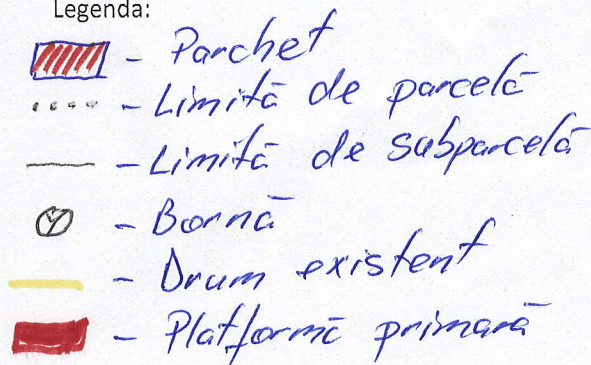 Legenda:
- Parchet
- Limită de parcelă
- Limită de subparcelă
- Bornă
- Drum existent
- Platformă primară